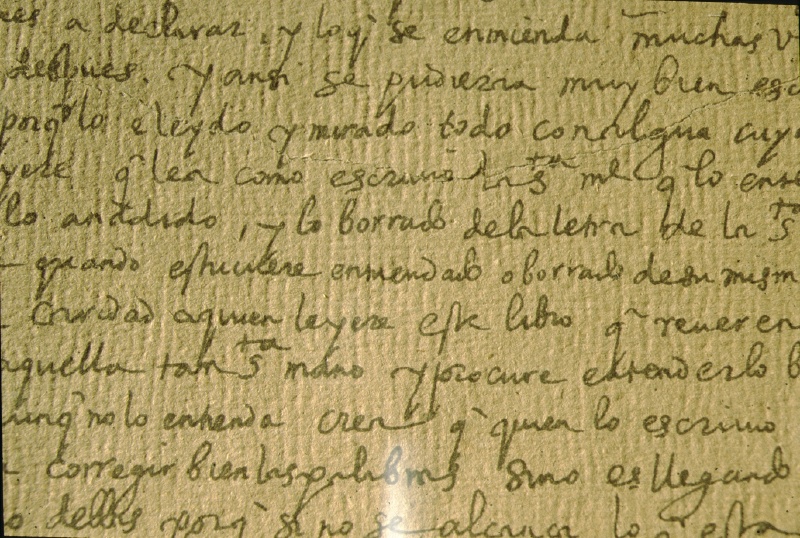 a declarar, y lo q̃ se enmienda muchas v
despues. Y ansi se pudiera muy bien esc
porq̃ lo e leydo y mirado todo con alguᵃ cuy
yere q̃ lea como escriuio la s.ᵗᵃ mᵉ q̃ lo ente
lo añadido, y lo borrado de la letra de la s.ᵗᵃ
quando estuuiere enmendado o borrado de su mism
Caridad a quien leyere este libro q̃ reueren
aquella tam s.ᵗᵃ mano y procure entenderlo b
aunq̃ no lo entienda crea q̃ quien lo escriuio
corregir bien las palabras sino es llegando
dellas porq̃ si no se alcança lo q̃ esta